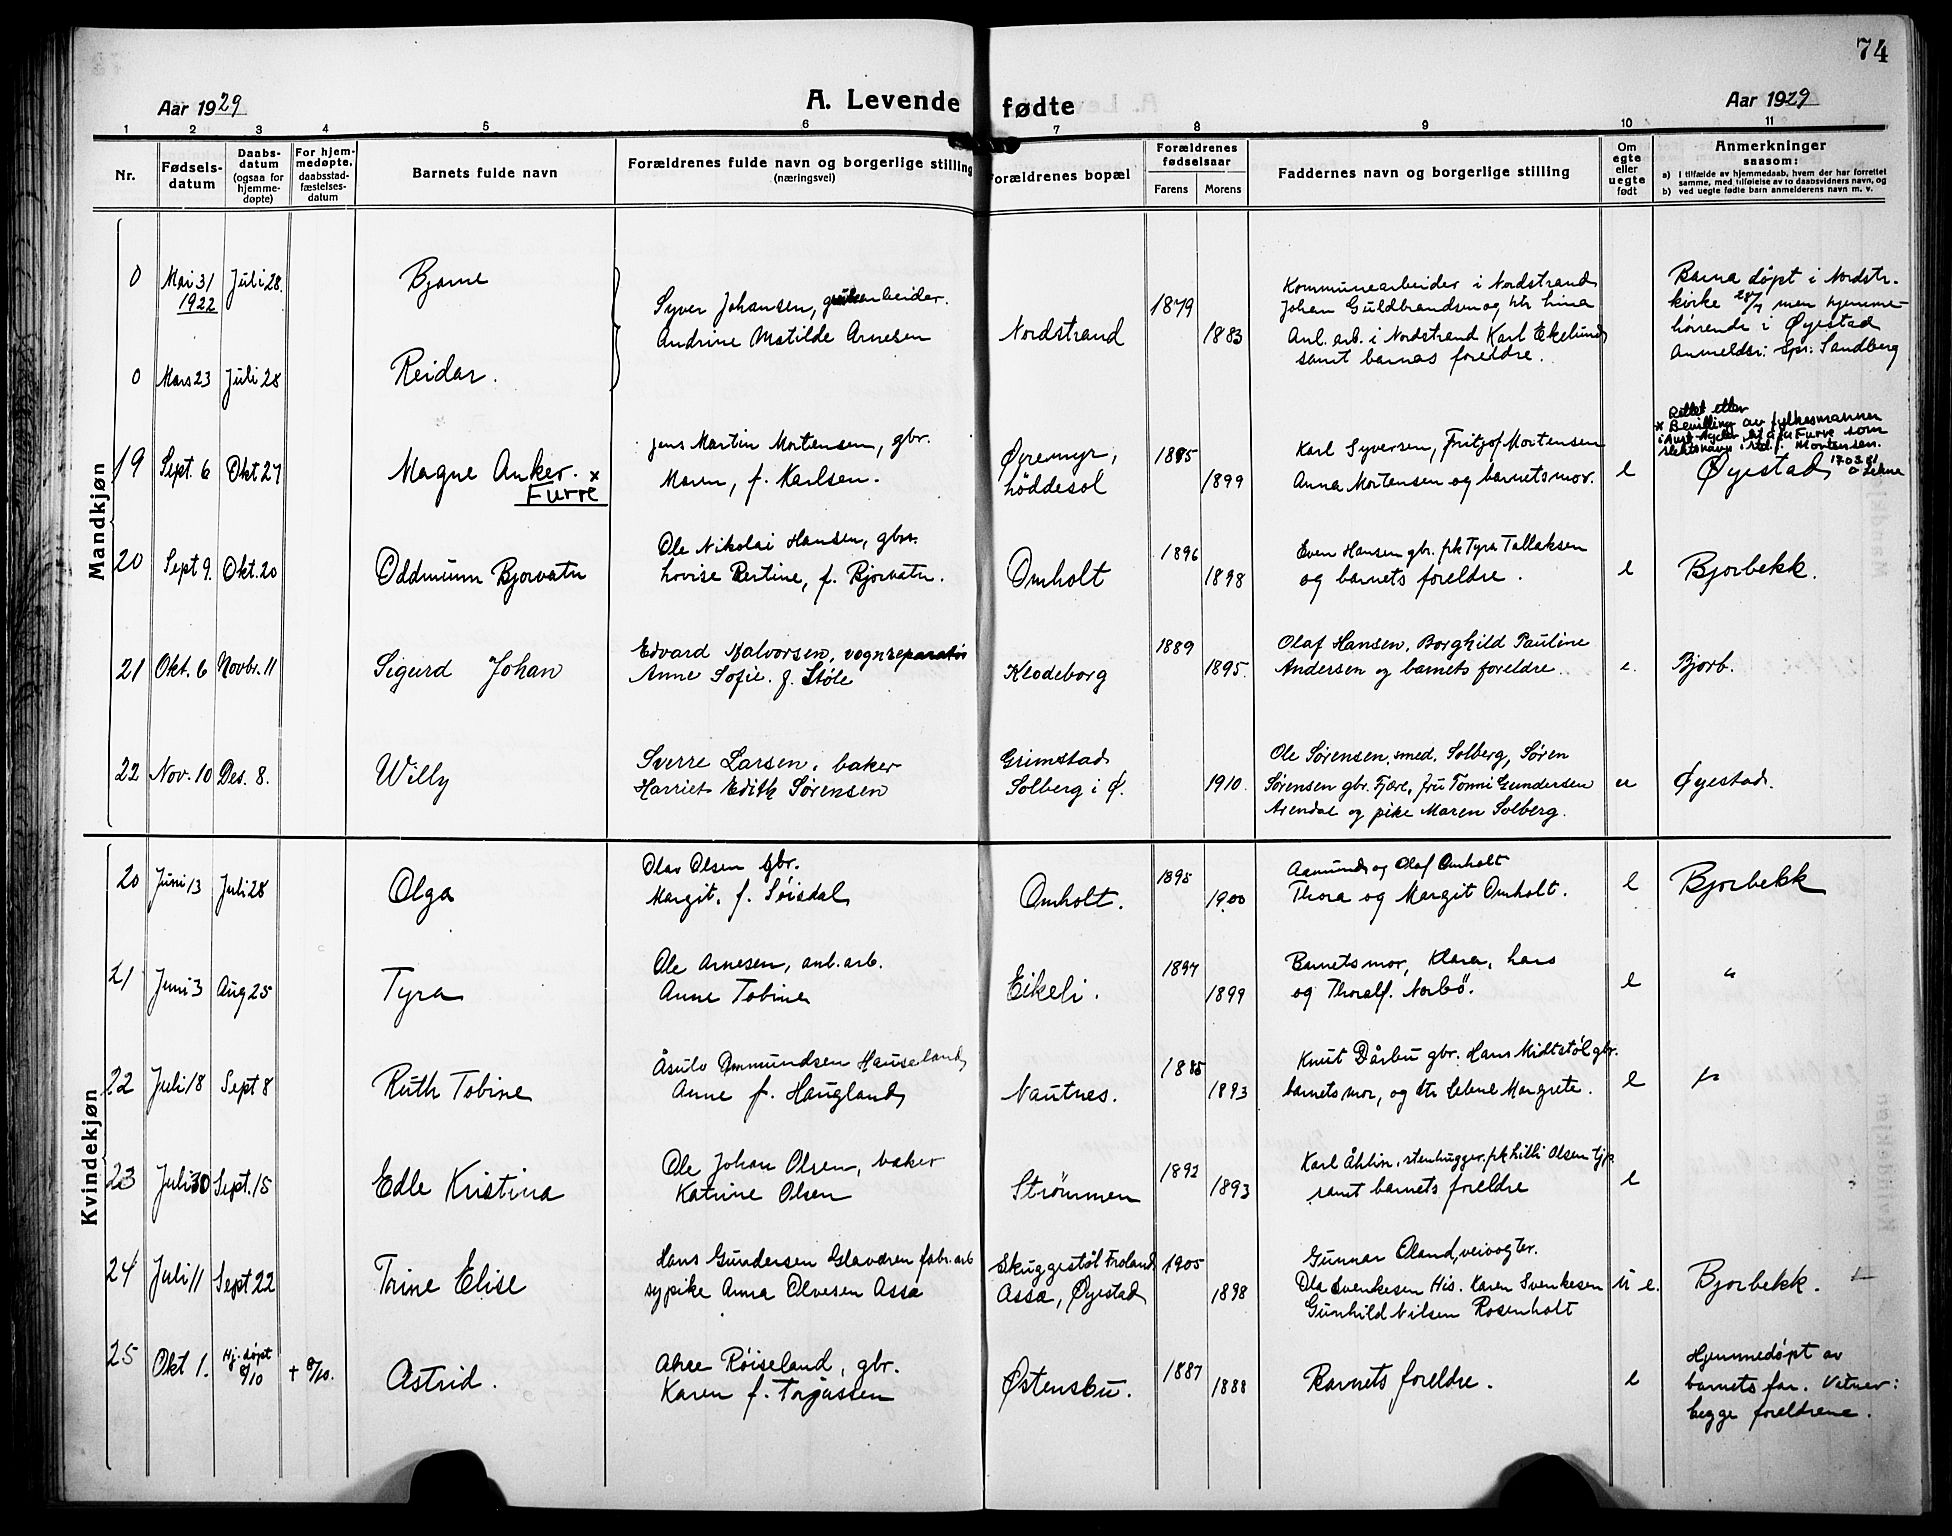 74
Aar 1929
A. Levende fødte
Aar 1929
1 2 3 4 5 6 7 8 9 10 11
Nr.
Fødsels-
datum
Daabs-
datum
(ogsaa for
hjemme-
døpte)
For hjem-
medøpte,
daabsstad-
fæstelses-
datum
Barnets fulde navn
Forældrenes fulde navn og borgerlige stilling
(næringsvei)
Forældrenes bopæl
Forældrenes
fødselsaar
Farens Morens
Faddernes navn og borgerlige stilling
Om
egte
eller
uegte
født
Anmerkninger
saasom:
a) I tilfælde av hjemmedaab, hvem der har forrettet
samme, med tilføielse av to daabsvidners navn, og
b) ved uegte fødte barn anmelderens navn m. v.
Mandkjøn
0 Mai 31
1922
Juli 28.
Bjarne
Syver Johansen,
Andrine Matilde Arnesen
Nordstrand
1879
1883
Kommunearbeider i Nordstrand
Johan Guldbrandsen og
Anl. arb. i Nordstrand Karl Ekelund
samt barnas foreldre.
Barna døpt i Nordstr.
kirke 28/7 men hjemme-
hørende i Øyestad
Anmelder: Spr. Sandberg
0 Mars 23 Juli 28
Reidar.
19 Sept. 6 Okt 27
Magne Anker. x
Furre
Jens Martin Mortensen, gbr.
Maren, f. Karlsen.
Øyremyr,
Løddesøl
1895
1899
Karl Syversen, Fritjof Mortensen
Anna Mortensen og barnets mor.
e
Rettet etter
x Bevilling av fylkesmannen
i Aust-Agder til å ta Furre som
slektsnavn i std. f. Mortensen.
17.03.81
Øyestad
20 Sept 9. Okt. 20
Oddmunn Bjorvatn
Ole Nikolai Hansen, gbr.
Lovise Bertine, f. Bjorvatn.
Omholt
1896
1898
Even Hansen gbr. pk Tyra Tallaksen
og barnets foreldre.
e
Bjorbekk.
21 Okt. 6 Novbr. 11
Sigurd Johan
Edvard Halvorsen, vognreparatør
Anne Sofie. f. Støle
Klodeborg
1889
1895.
Olaf Hansen, Borghild Pauline
Andersen og barnets foreldre.
e.
Bjorb.
22 Nov. 10 Des. 8.
Willy
Sverre Larsen, baker
Harriet Edith Sørensen
Grimstad
Solberg i Ø.
1910.
Ole Sørensen, smed, Solberg, Søren
Sørensen gbr. Fjære, fru Tomni Gundersen
Arendal og pike Maren Solberg.
u
Øyestad.
Kvindekjøn
20 Juni 13 Juli 28
Olga
Olav Olsen gbr.
Margit, f. Sørsdal
Omholt.
1895
1900
Aamund og Olaf Omholt
Thora og Margit Omholt.
e
Bjorbekk
21 Juni 3 Aug 25
Tyra
Ole Arnesen, anl. arb.
Anne Tobine
Eikeli.
1897
1899
Barnets mor, Klara, Lars
og Thoralf. Norbø.
e
"
22 Juli 18 Sept 8
Ruth Tobine
Åsulv Ommundsen Hauseland
Anne f. Haugland
Nautnes.
1885
1893
Knut Dårbu gbr. Hans Midtstøl gbr.
barnets mor, og Selene Margrete.
e
"
23 Juli 30 Sept. 15
Edle Kristina
Ole Johan Olsen, baker
Katrine Olsen
Strømmen
1892
1893
Karl Åhlin, stenhugger. pk Lilli Olsen tjp.
samt barnets foreldre
e
24 Juli 11 Sept 22
Trine Elise
Hans Gundersen Glaveren fabr. arb
sypike Anna Olvesen Assa
Skuggestøl Froland
Assa, Øyestad
1905
1898
Gunnar Oland, veivogter.
Ola Svenkesen His. Karen Svenkesen
Gunhild Nilsen Rosenholt
U e.
Bjorbekk.
25 Okt 1. Hj. døpt
8/10
+ 8/10.
Astrid.
Røiseland, gbr.
Karen f. Torjussen
Østensbu.
1887
1888
Barnets foreldre.
e
Hjemmedøpt av
barnets far. Vitner:
begge foreldrene.